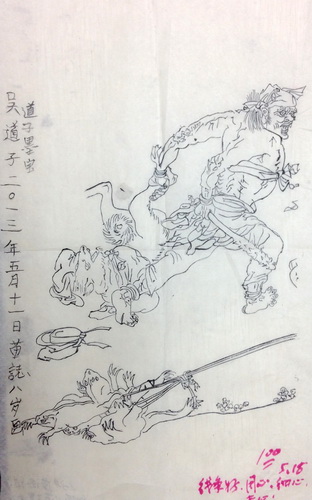 道子墨宝
吴道子 二〇一三年五月十一日 黄誌八岁画
100
5.18
线条好.用心.细心.